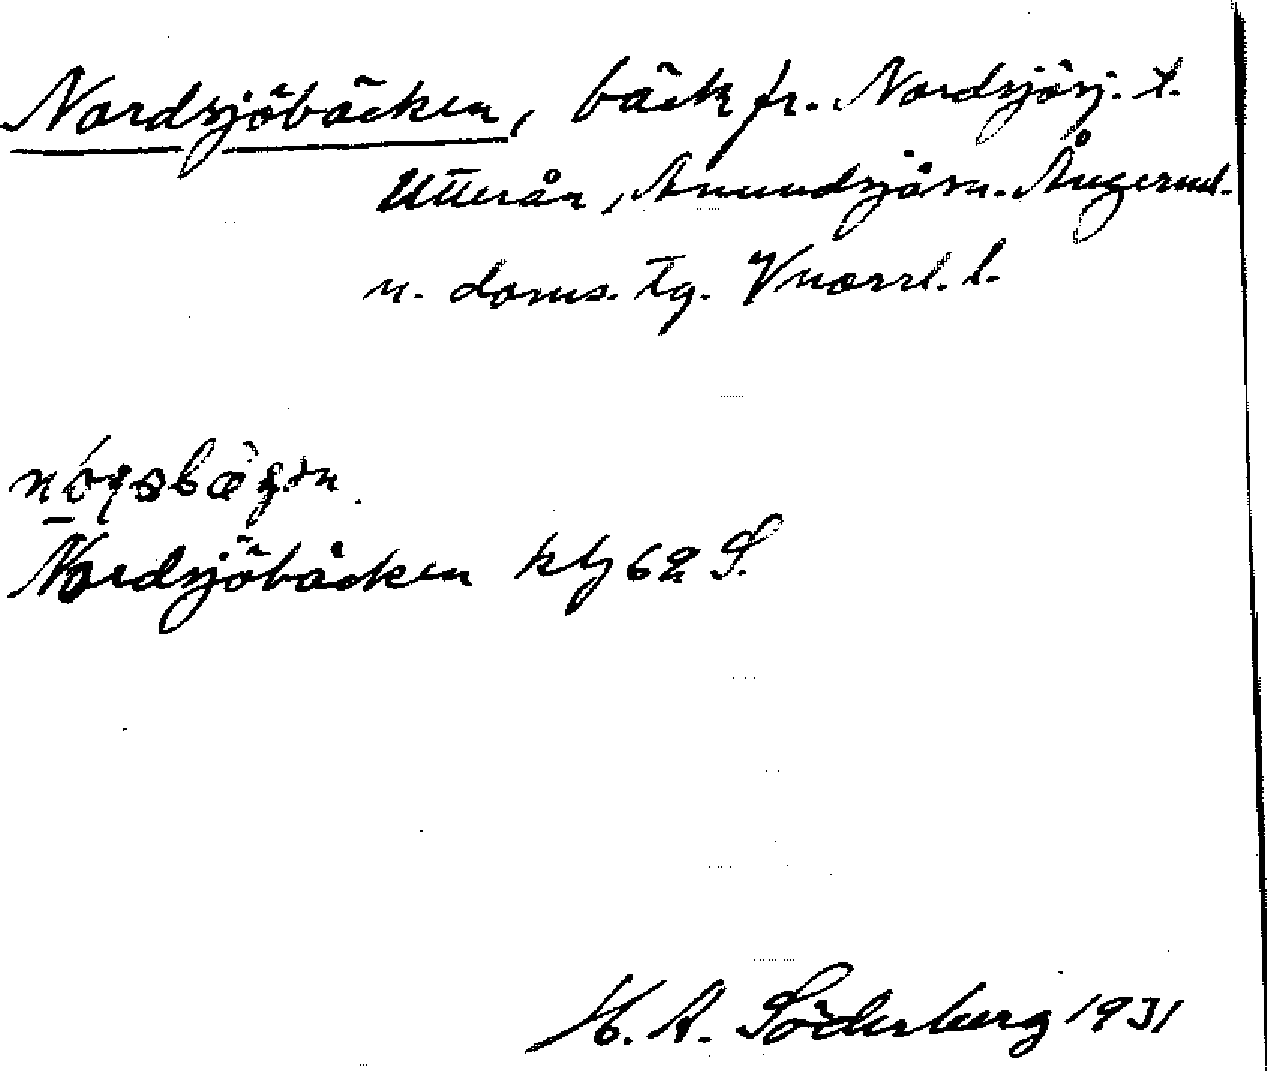 Nordsjöbäcken, bäck fr. Nordsjösj. t.
Utterån, Anundsjö sn. Ångerml.
n. doms. tg. Vnorrl. l.
Nordsjöbäcken kbl 62 S.
H. A. Söderberg 1931